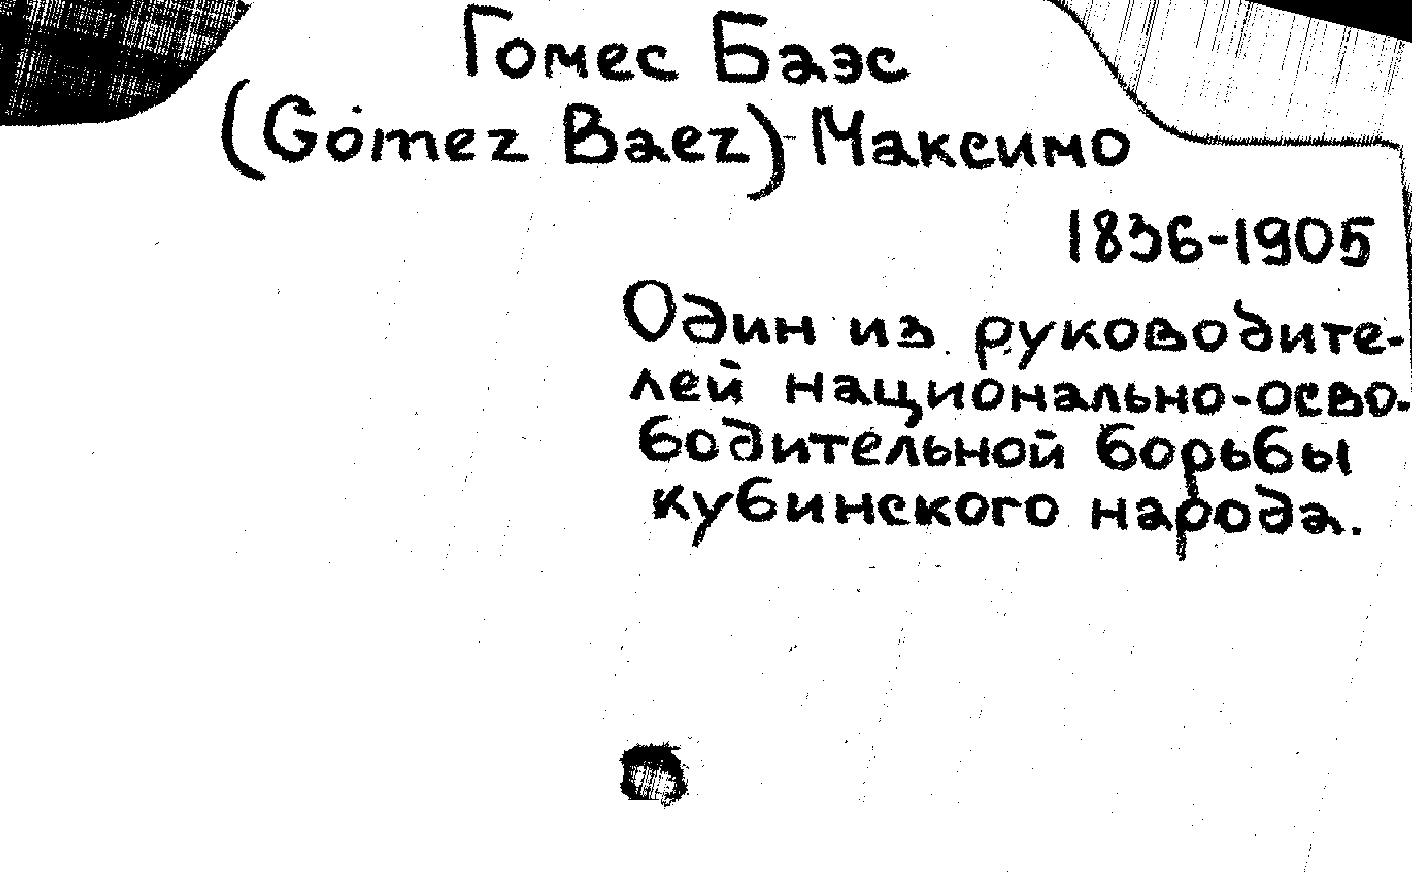 Гомес Баэс
(Gómez Baez) Максимо
1836-1905
Один из руководите-
лей национально-осво-
бодительной борьбы
кубинского народа.